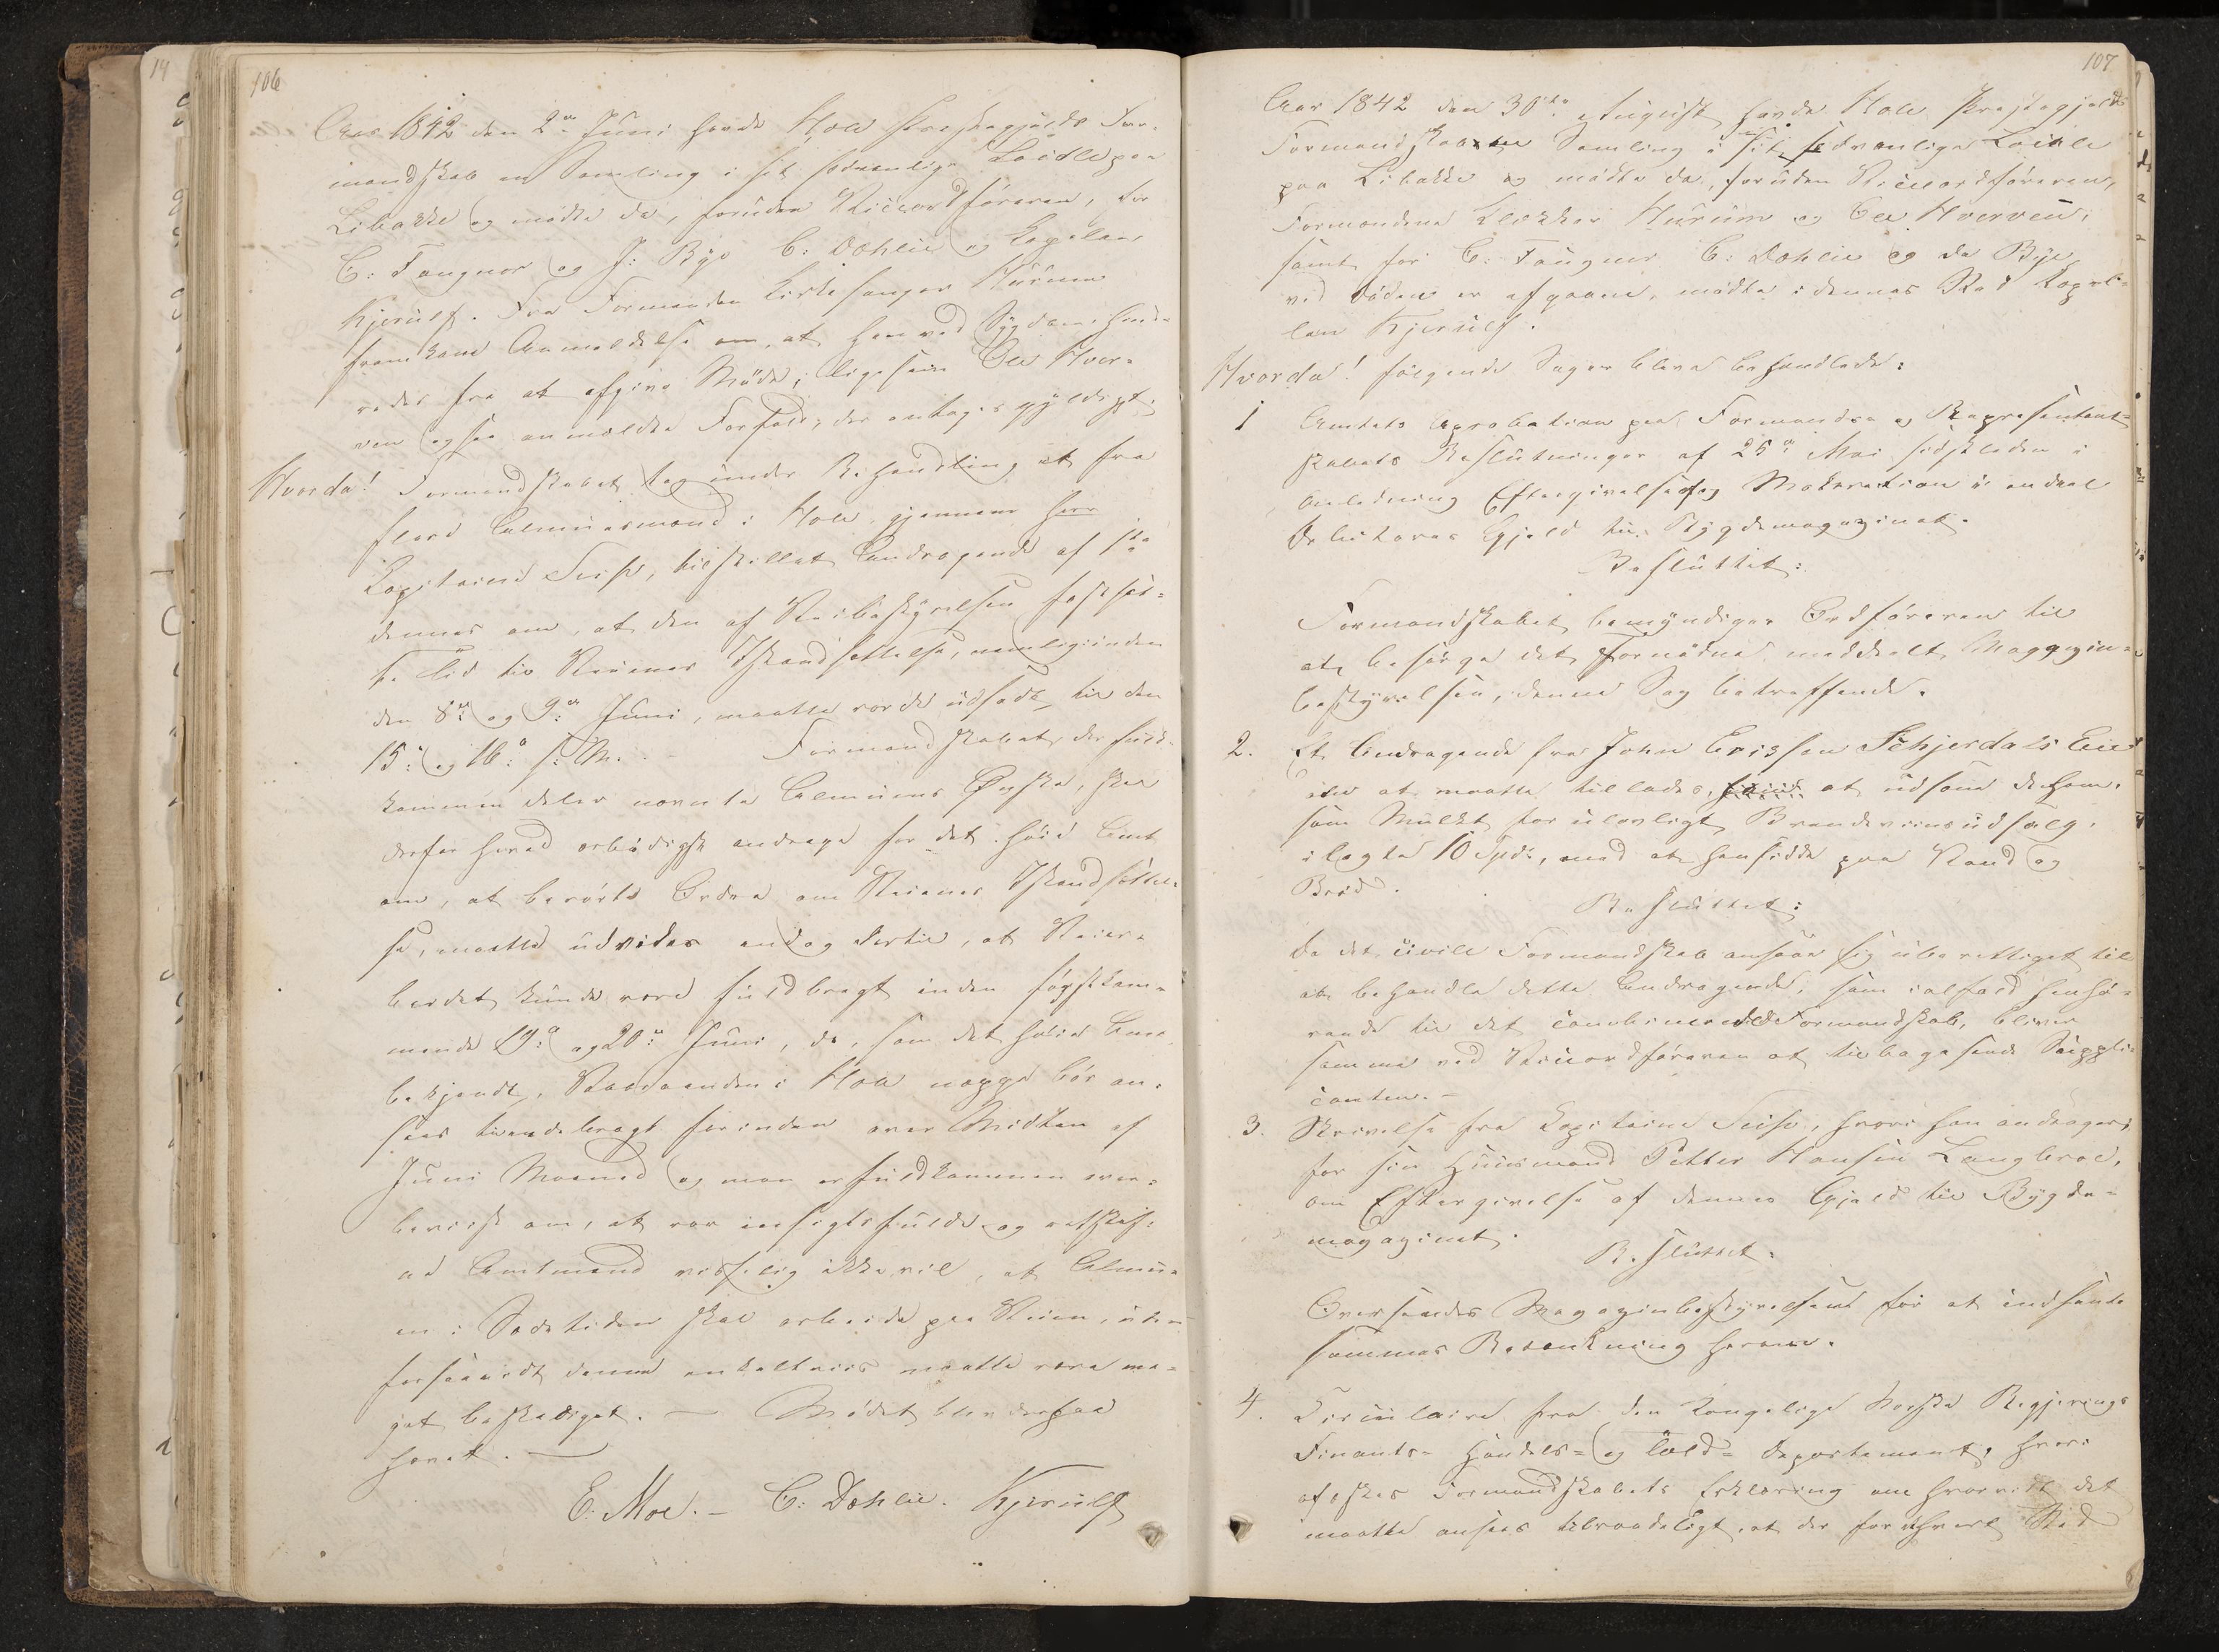 106
Aar 1842 den 2den Juni havde Hole Præstegjelds For-
mandskab en Samling i sit sædvanlige Locale paa
Libakke og mødte da, foruden Viceordføreren, for
C: Fougner og J: Bye C: Dæhlie og Capelan
Kjerulf. Fra Formanden Kirkesanger Hurum
fremkom Anmeldelse om, at han ved Sygdom hind-
redes fra at afgive Møde; ligesom Ole Hver-
ven ogsaa anmeldte Forfald, der antages gyldigt.
Hvorda! Formandskabet tog under Behandling et fra
fleere Almuesmænd i Hole, gjennem Herr
Capitaine Seip, tilstillet Andragende af 1ste
dennes om, at den af Veibestyrelsen fastsat-
te Tid til Veienes Istandsættelse, nemlig inden
den 8de og 9de Juni, maatte vorde udsadt til den
15de og 16de s. M. - Formandskabet, der fuld-
kommen deler nævnte Almues Ønske, skal
derfor herved ærbødigst andrage for det høie Amt
om, at berørte Ordre om Veienes Istandsættel-
se, maatte udvides endog dertil, at Veiar-
beidet kunde være fuldbragt indenførstkom-
mende 19de og 20de Juni, da, som det høie Amt
bekjendt, Vaaraanden i Hole neppe bør an-
sees tilendebragt førinden over Midten af
Juni Maaned og man er fuldkommen over-
beviist om, at vor indsigtsfulde og retskaf-
ne Amtmand visselig ikke vil, at Almu-
en i Sædetiden skal arbeide paa Veien, uden
forsaavidt denne enkeltviis maatte være me-
get beskadiget. — Mødet blev derpaa
hævet. —
E. Moe. - C: Dæhlie. Kjerulf
107
Aar 1842 den 30te August havde Hole Præstegjelds
Formandskab en Samling i sit sædvanlige Locale
paa Libakke og mødte da, foruden Viceordføreren,
Formændene Klokker Hurum og Ole Hverven,
samt for C: Fougner C: Dæhlie og da Bye
ved Døden er afgaaen, mødte i dennes Sted Capel-
lan Kjerulf.
Hvorda! følgende Sager bleve behandlede:
1 Amtets Aprobation paa Formænds og Repræsentant-
skabets Beslutninger af 25de Mai sidstleden i
Anledning Eftergivelse og Moderation i endeel
Debitorers Gjeld til Bygdemagazinet.
Besluttet:
Formandskabet bemyndiger Ordføreren til
at besørge det Fornødne meddeelt Magazin-
bestyrelsen, denne Sag betreffende.
2. Et Andragende fra John Erigsen Schjerdals Eie
om at maatte tillades, at udsone de ham,
som Mulkt for ulovligt Brændeviinsudsalg,
ilagte 10 Spd:, med at hensidde paa Vand og
Brød.
Besluttet:
Da det civile Formandskab anseer sig uberettiget til
at behandle dette Andragende, som ialfald henhø-
rende til det combinerede Formandskab, bliver
samme ved Viceordføreren at tilbagesende Suppli-
canten. -
3. Skrivelse fra Capitaine Seip, hvori han andrager,
for sin Huusmand Petter Hansen Langbroe,
om Eftergivelse af dennes Gjeld til Bygde-
magazinet.
Besluttet:
Oversendes Magazinbestyrelsen for at indhente
sammes Betænkning herom.
4. Circulaire fra den kongelige Norske Regjerings
Finants- Handels- og Told- Departement, hvori
afæskes Formandskabets Erklæring om hvorvidt det
maatte ansees tilraadeligt, at der for ethvert Sted